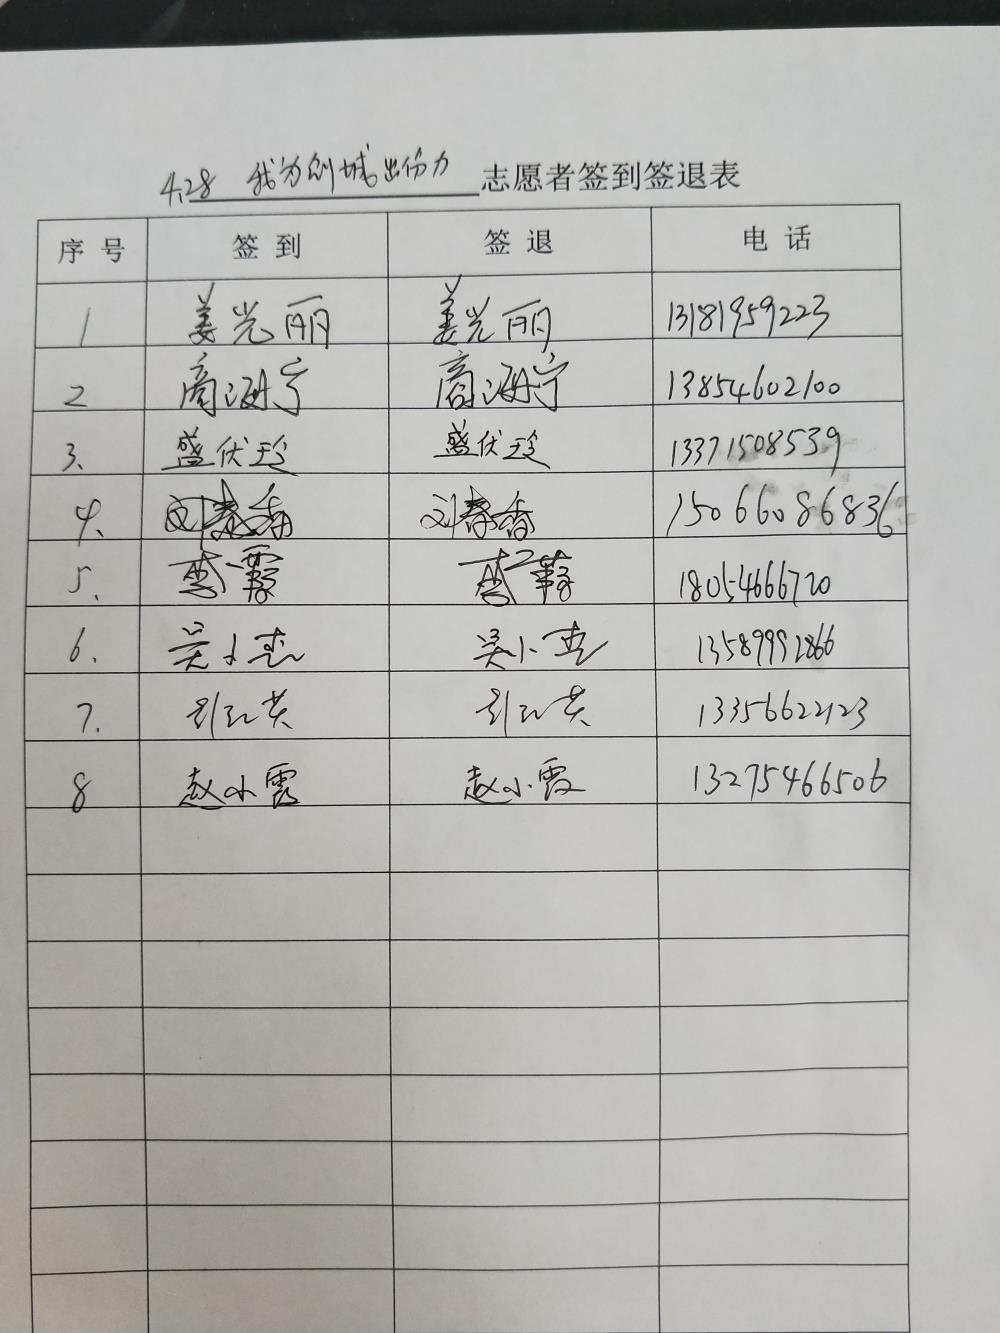 4.28 我为创城出份力 志愿者签到签退表
序号 签到 签退 电话
1 姜光丽 姜光丽 13181959223
2 商海宁 商海宁 13854602100
3. 盛伏珍 盛伏珍 13371508539
4. 刘春香 刘春香 15066086836
5. 李霞 李霞 18054666720
6. 吴小杰 吴小杰 13589992866
7. 13356622123
8 赵小霞 赵小霞 13275466506